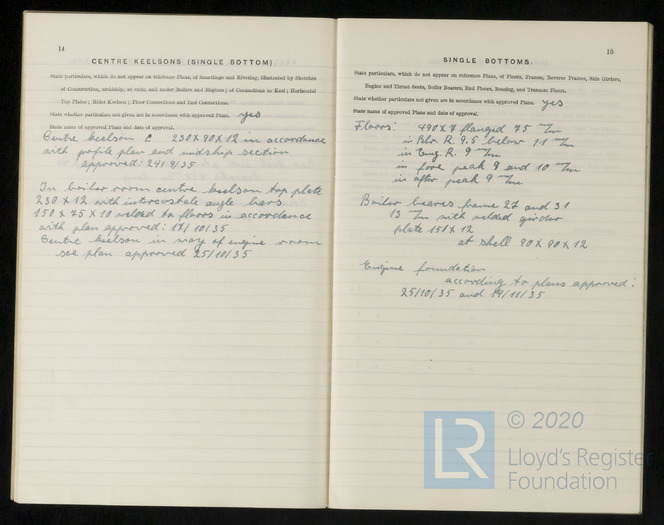 14
CENTRE KEELSONS (SINGLE BOTTOM)
State particulars, which do not appear on reference Plans, of Scantlings and Riveting, illustrated by Sketches
of Construction, amidship, at ends, and under Boilers and Engines; of Connections to Keel; Horizontal
Top Plates; Rider Keelson; Floor Connections and End Connections.
State whether particulars not given are in accordance with approved Plans. yes
State name of approved Plans and date of approval.
Centre keelson [ 230 X 90 X 12 in accordance
with profile plan and midship section
approved: 24/9/35
In boiler room centre keelson top plate
230 X 12 with intercostale angle bars
150 X 75 X 10 welded to floors in accordance
with plan approved: 17/10/35
Centre keelson in way of engine room
see plan approved 25/10/35
15
SINGLE BOTTOMS.
State particulars, which do not appear on reference Plans, of Floors, Frames, Reverse Frames, Side Girders,
Engine and Thrust Seats, Boiler Bearers, End Floors, Boxing, and Transom Floors.
State whether particulars not given are in accordance with approved Plans. yes
State name of approved Plans and date of approval.
Floors: 490 X 7 flanged 75 m/m
in Blr. R. 9,5 below 11 m/m
in Eng. R. 9 m/m
in fore peak 9 and 10 m/m
in after peak 9 m/m
Boiler beares frame 27 and 31
13 m/m with welded girder
plate 150 X 12
at shell 90 X 90 X 12
Engine foundation
according to plans approved:
25/10/35 and 19/11/35
LR
© 2020
Lloyd's Register
Foundation